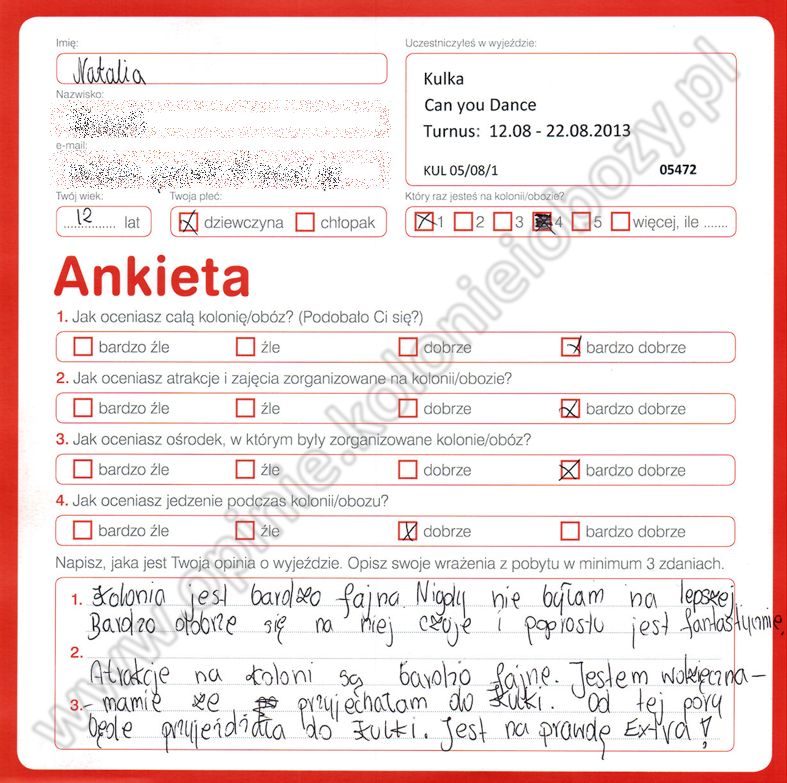 Imię:
Natalia
Nazwisko:
e-mail:
Twój wiek:
12 lat
Twoja płeć:
dziewczyna chłopak
Uczestniczyłeś w wyjeździe:
Kulka
Can you Dance
Turnus: 12.08 - 22.08.2013
KUL 05/08/1 05472
Który raz jesteś na kolonii/obozie?
1 2 3 4 5 więcej, ile .......
Ankieta
1. Jak oceniasz całą kolonię/obóz? (Podobało Ci się?)
bardzo źle źle dobrze bardzo dobrze
2. Jak oceniasz atrakcje i zajęcia zorganizowane na kolonii/obozie?
bardzo źle źle dobrze bardzo dobrze
3. Jak oceniasz ośrodek, w którym były zorganizowane kolonie/obóz?
bardzo źle źle dobrze bardzo dobrze
4. Jak oceniasz jedzenie podczas kolonii/obozu?
bardzo źle źle dobrze bardzo dobrze
Napisz, jaka jest Twoja opinia o wyjeździe. Opisz swoje wrażenia z pobytu w minimum 3 zdaniach.
1. Kolonia jest bardzo fajna. Nigdy nie byłam na lepszej
Bardzo dobrze się na niej czuje i poprostu jest fantastycznie.
2.
Atrakcje na koloni są bardzo fajne. Jestem wdzięczna -
3. - mamię że przyjechałam do Kulki. Od tej pory
będe przyjeżdżała do Kulki. Jest na prawdę Extra!
www.opinie.kolonieiobozy.pl